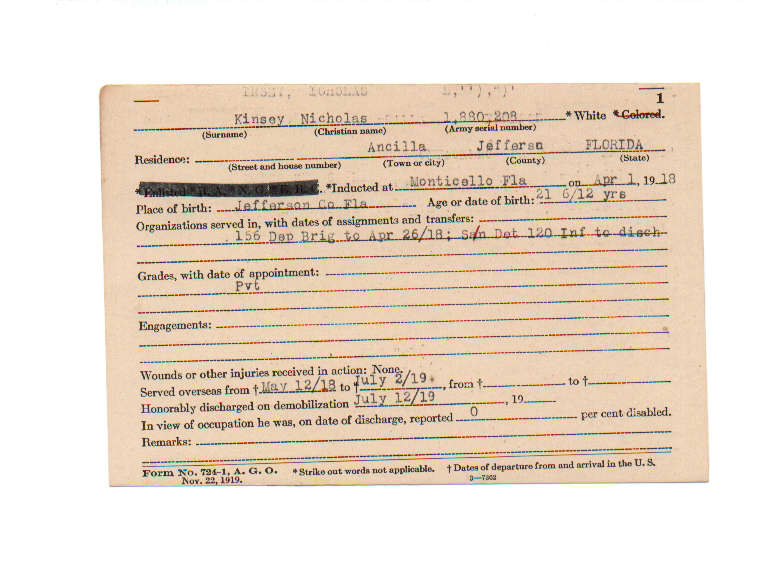 1
Kinsey Nicholas 1,880,208 * White *Colored.
(Surname) (Christian name) (Army serial number)
Ancilla Jefferson FLORIDA
Residence:
(Street and house number) (Town or city) (County) (State)
*Enlisted *R. A. *N. G. *E. R. C. *Inducted at Monticello Fla on Apr 1, 1918
Place of birth: Jefferson Co Fla Age or date of birth: 21 6/12 yrs
Organizations served in, with dates of assignments and transfers:
156 Dep Brig to Apr 26/18; San Det 120 Inf to disch
Grades, with date of appointment:
Pvt
Engagements:
Wounds or other injuries received in action: None.
Served overseas from † May 12/18 to † July 2/19, from † to †
Honorably discharged on demobilization July 12/19, 19
In view of occupation he was, on date of discharge, reported 0 per cent disabled.
Remarks:
Form No. 724-1, A. G. O. *Strike out words not applicable. † Dates of departure from and arrival in the U. S.
Nov. 22, 1919. 3—7302